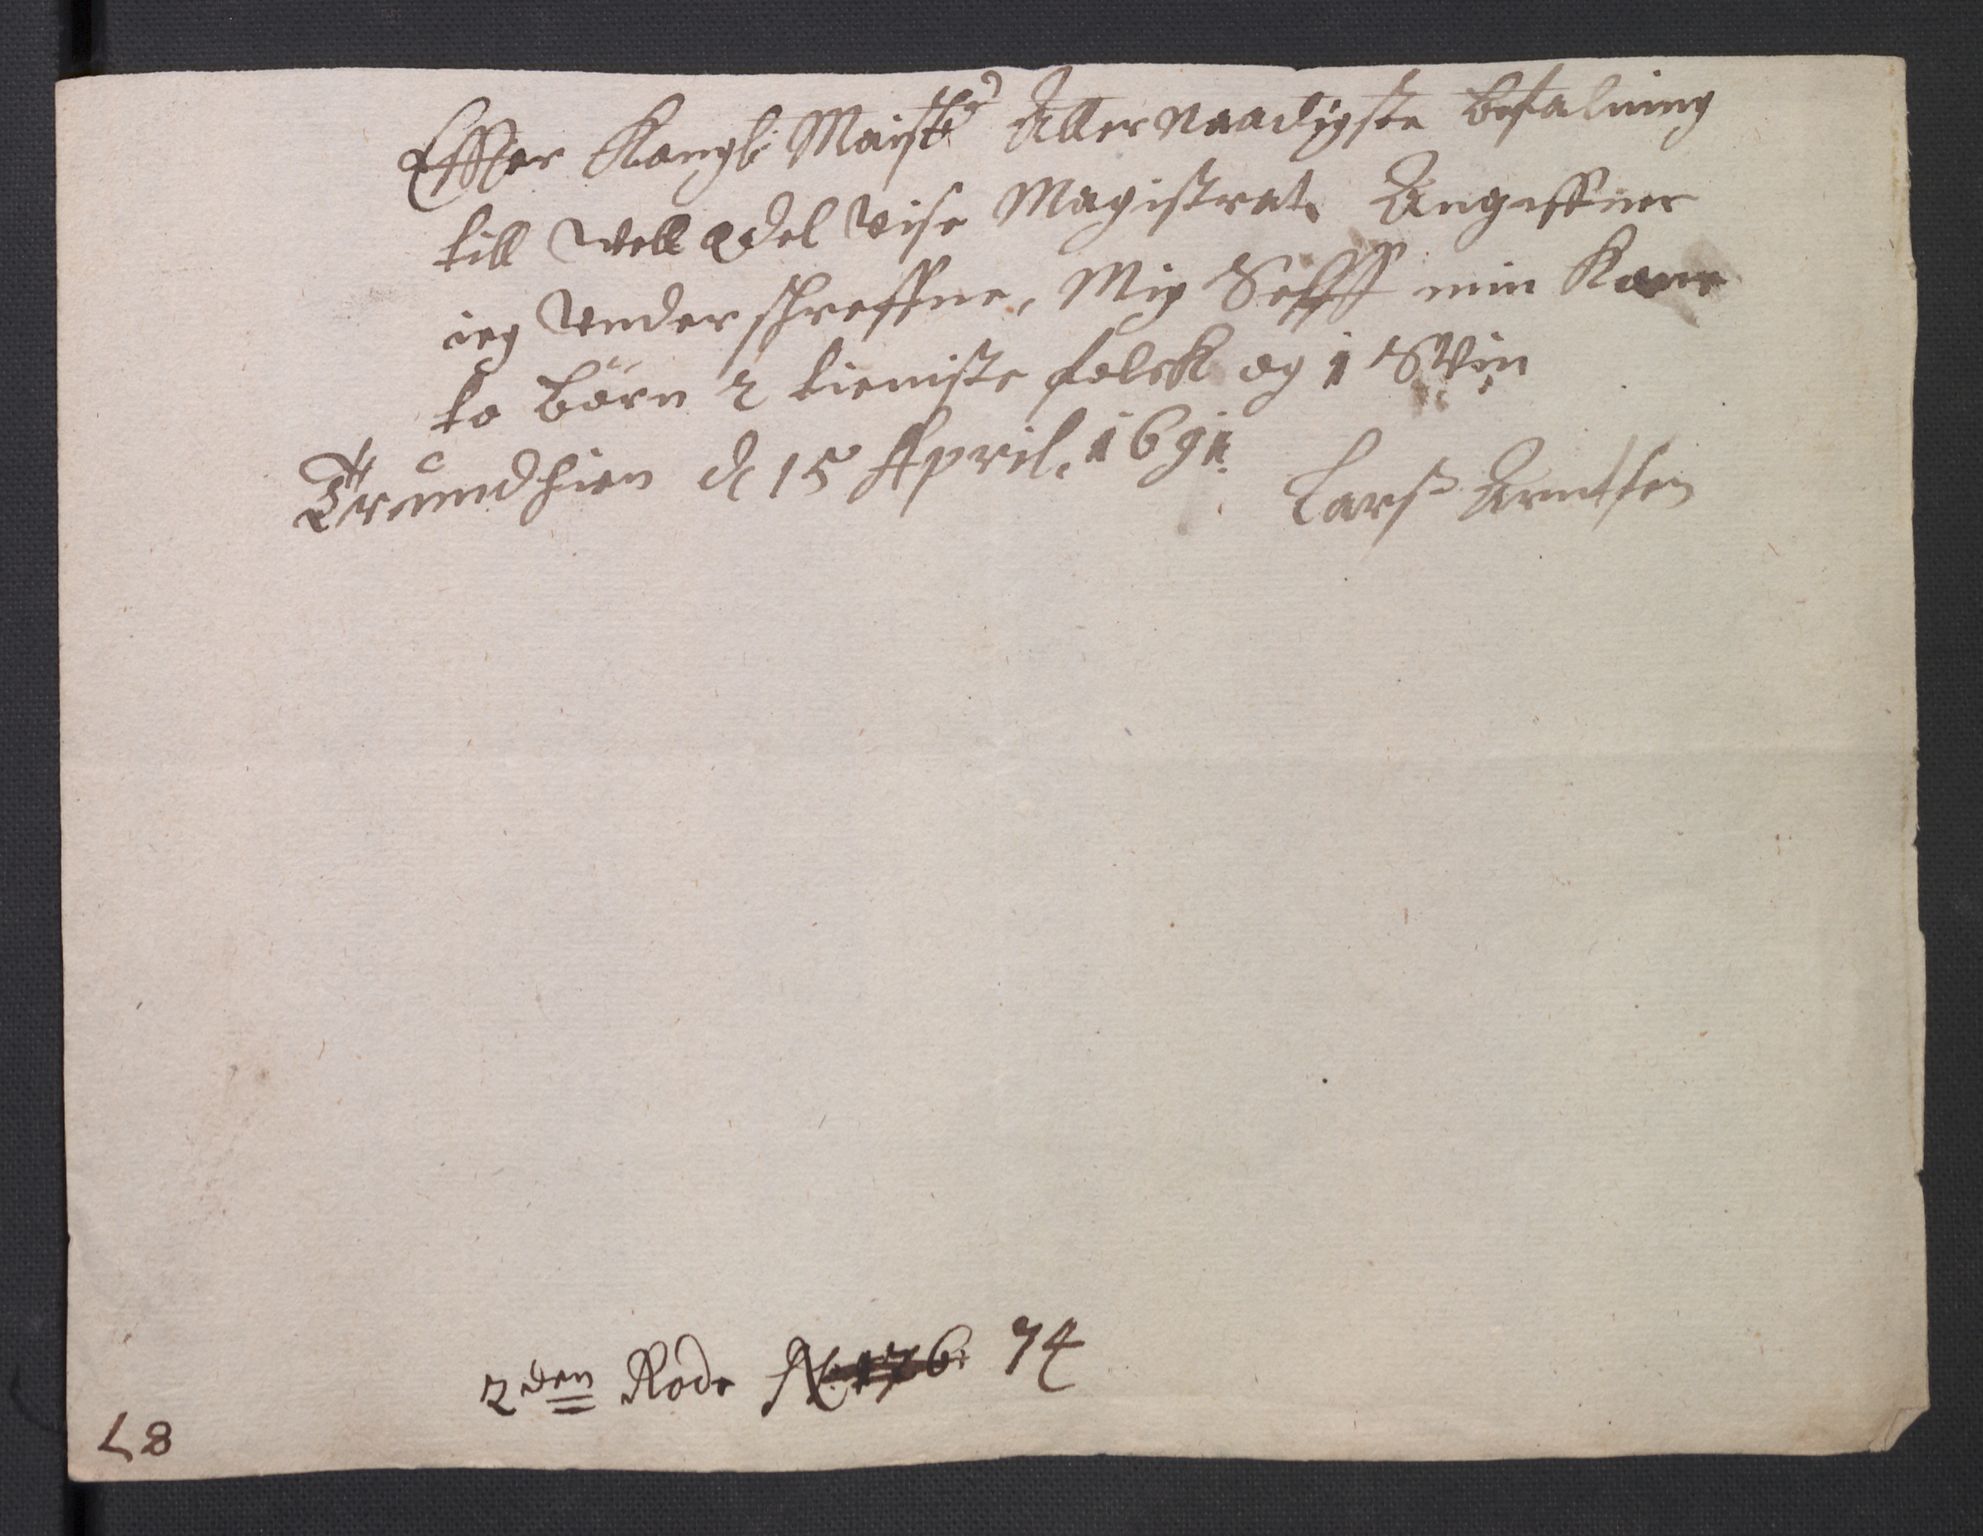 Effter Kongl: Maistts Aller Naadigste befalning
till Well Edel Vise Magistrat, Angiffuer
ieg Underschreffne, Mig Selff min Kone
to Börn 2 tieniste folck og 1 Svin
Trundhien d 15 April, 1691.
Larss Arentsen
2den Rode N 176: 74
L8